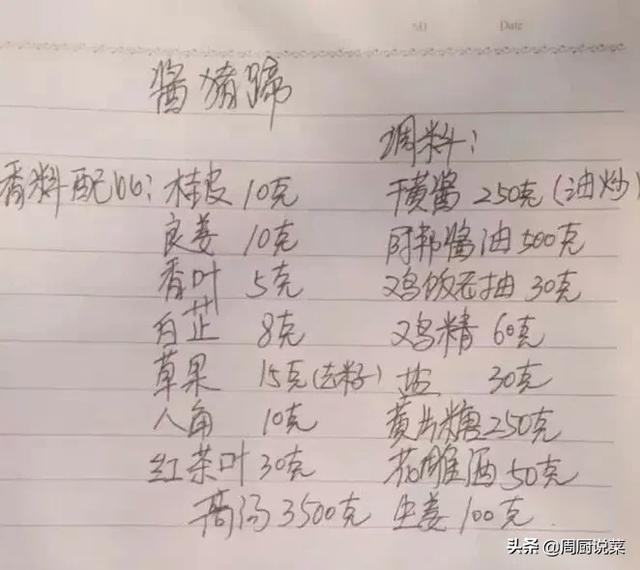 No
Date
酱猪蹄
调料：
香料配比：桂皮 10克 干黄酱 250克（油炒）
良姜 10克 阿邦酱油 500克
香叶 5克 鸡饭老抽 30克
白芷 8克 鸡精 60克
草果 15克（去籽） 盐 30克
八角 10克 黄片糖 250克
红茶叶 30克 花雕酒 50克
高汤 3500克 生姜 100克
头条 @周厨说菜